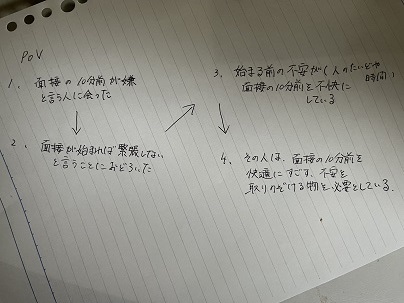 PoV
1. 面接の10分前が嫌
と言う人に会った
2. 面接が始まれば緊張しない
と言うことにおどろいた
3. 始まる前の不安が(人のたいどや
時間)
面接の10分前を不快に
している
4. その人は、面接の10分前を
快適にすごす、不安を
取りのぞける物を必要としている.